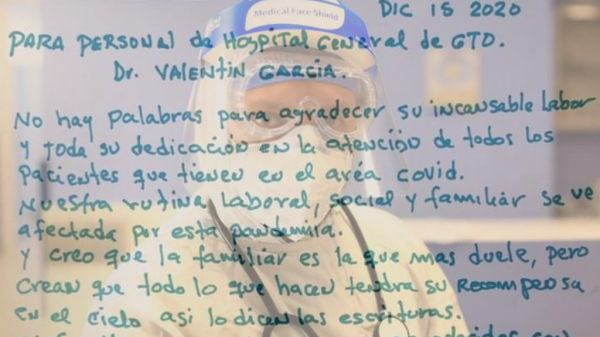 Medical Face Shield
DIC 15 2020
PARA PERSONAL de HOSPITAL General de GTO.
Dr. VALENTIN GARCIA.
No hay palabras para agradecer su incansable labor
y toda su dedicación en la atención de todos los
pacientes que tienen en el area covid.
Nuestra rutina laboral, social y familiar se ve
afectada por esta pandemia.
y creo que la familiar es la que mas duele, pero
crean que todo lo que hacen tendra su recompensa
en el cielo asi lo dicen las escrituras.